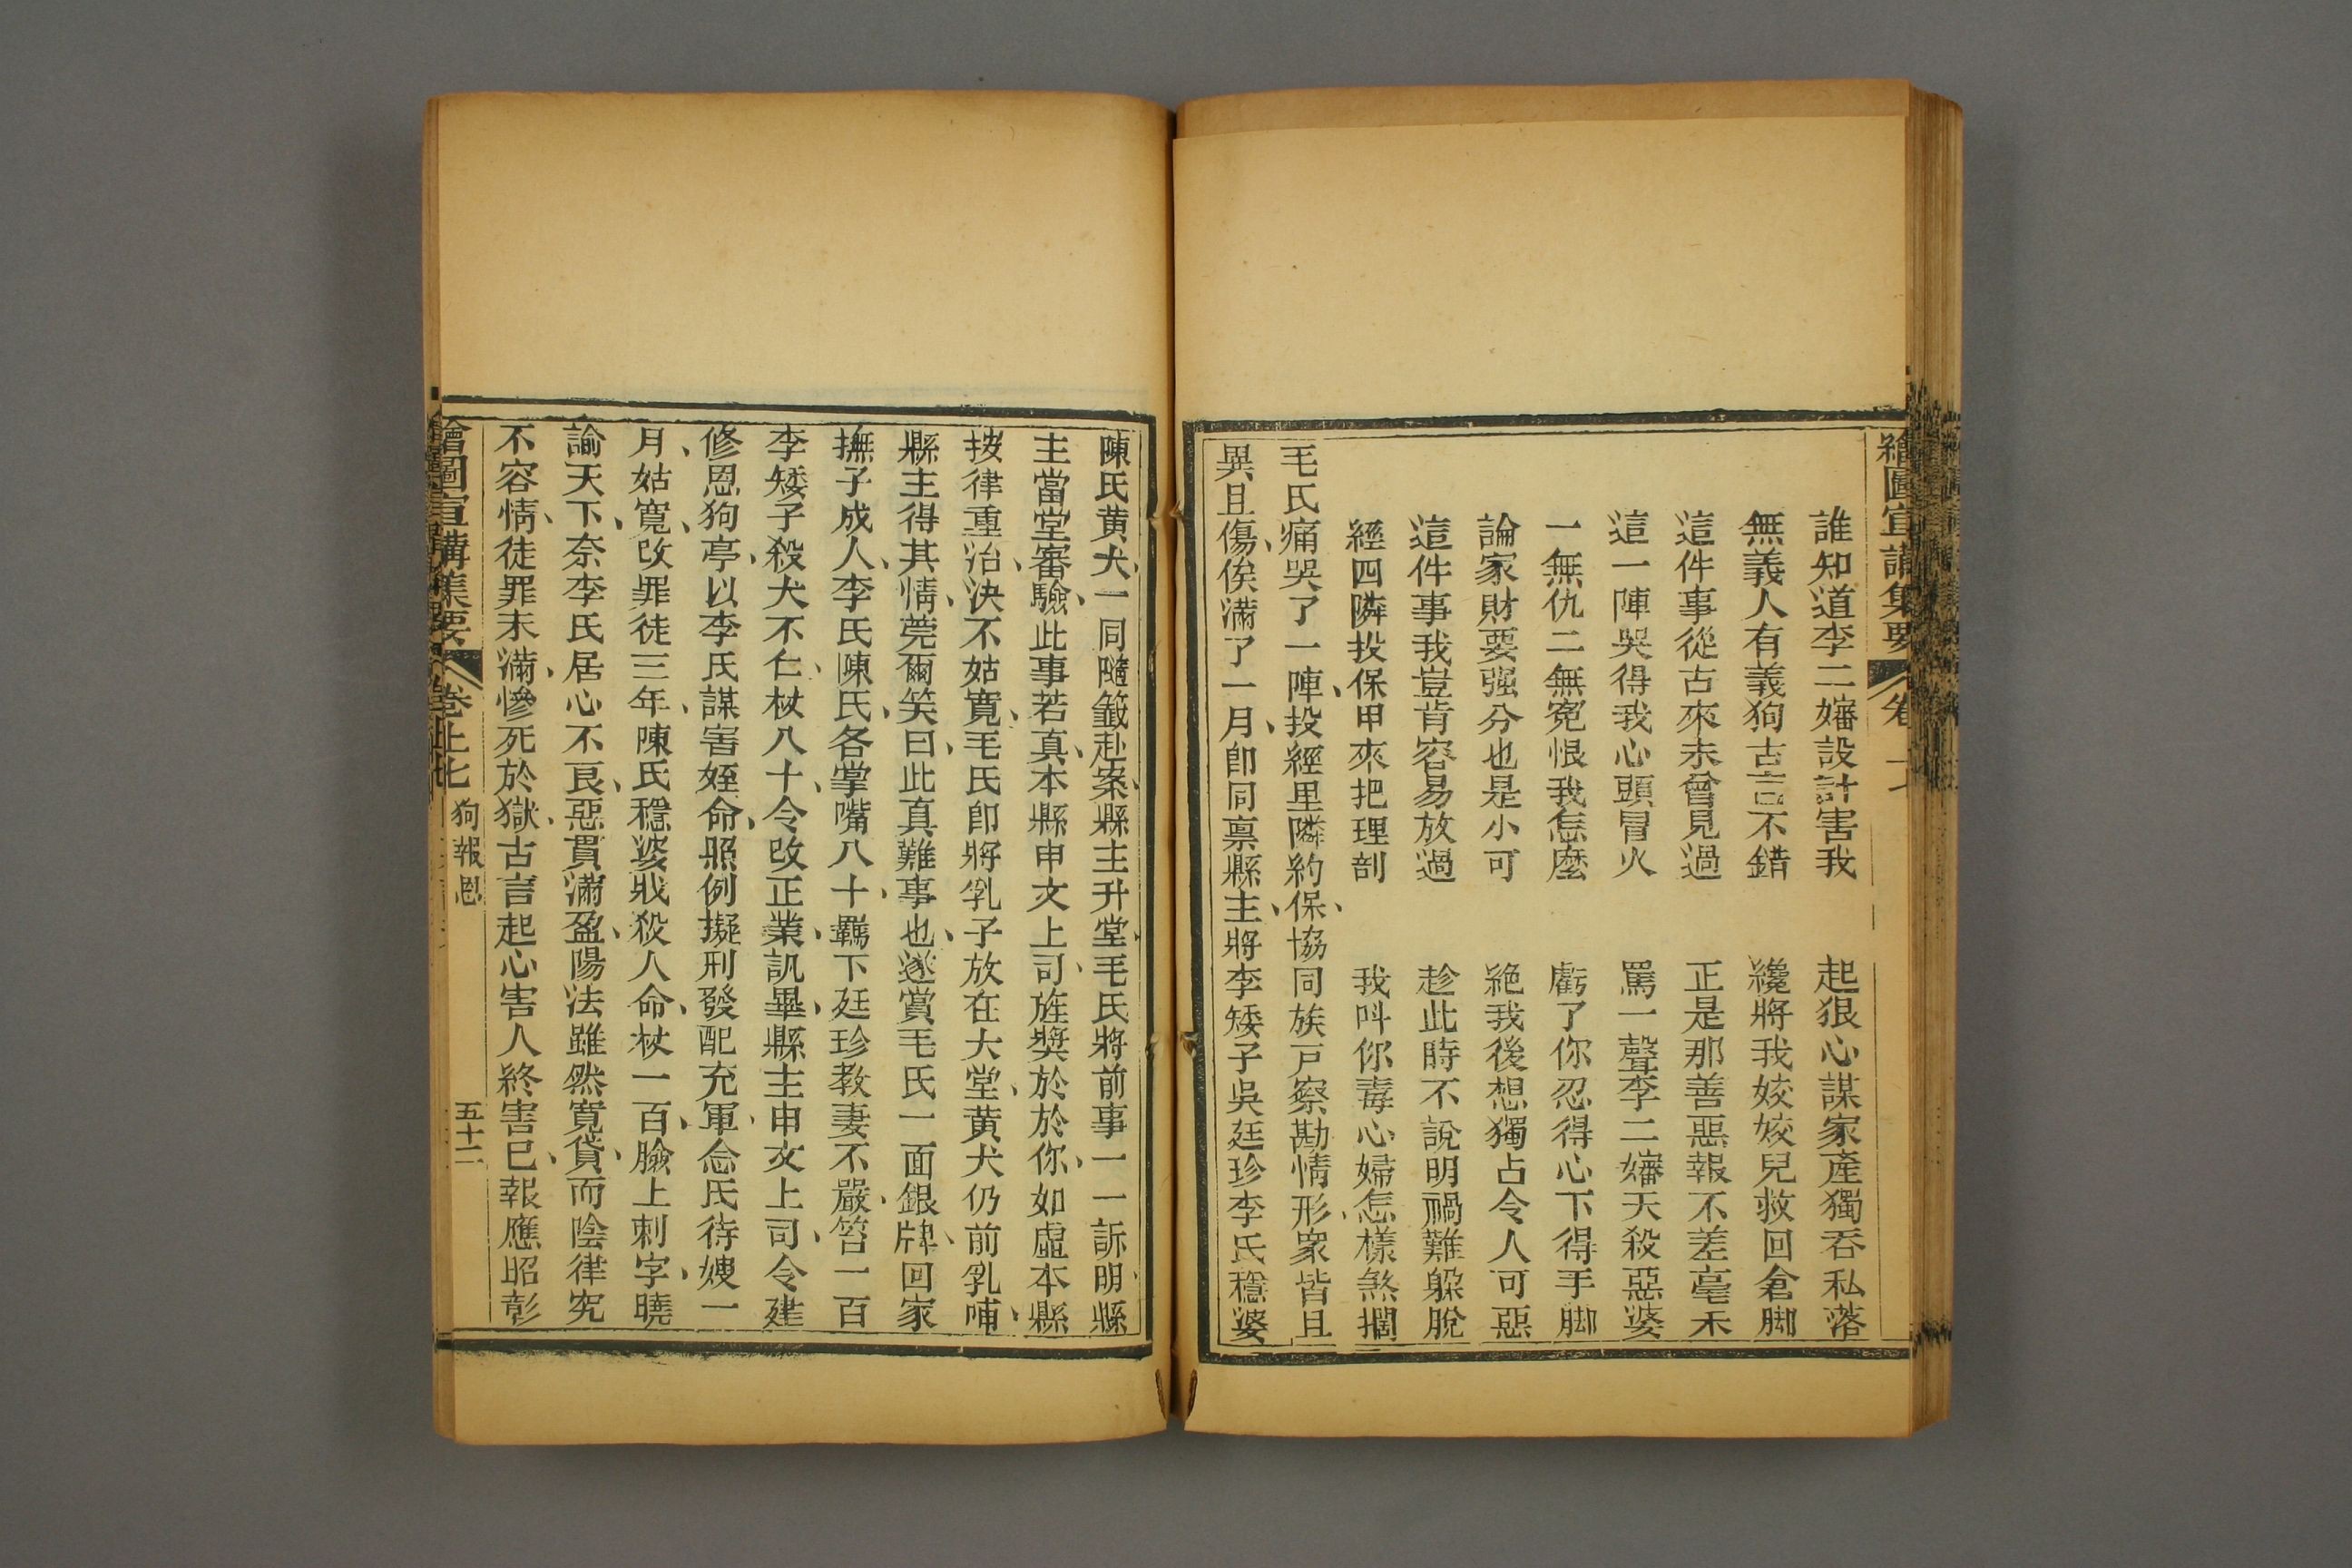 繪圖宣講集要 卷七
誰知道李二嬸設計害我 起狠心謀家產獨吞私落
無義人有義狗古言不錯 纔將我姣姣兒救回倉脚
這件事從古來未曾見過 正是那善惡報不差毫禾
這一陣哭得我心頭冒火 罵一聲李二嬸天殺惡婆
一無仇二無冤恨我怎麼 虧了你忍得心下得手脚
論家財要强分也是小可 絕我後想獨占令人可惡
這件事我豈肯容易放過 趁此時不說明禍難躲脫
經四隣投保甲來把理剖 我呌你毒心婦怎樣煞擱
毛氏痛哭了一陣、投經里隣約保、協同族戸察勘情形、眾皆且
異且傷、俟滿了一月、卽同禀縣主、將李矮子吳廷珍李氏穩婆
陳氏黄犬、一同隨籤赴案、縣主升堂、毛氏將前事一一訴明、縣
主當堂審驗、此事若真、本縣申文上司、旌奬於於你、如虛本縣
按律重治、決不姑寬、毛氏卽將乳子放在大堂、黄犬仍前乳哺、
縣主得其情、莞爾笑曰、此真難事也、遂賞毛氏一面銀牌、回家
撫子成人、李氏陳氏、各掌嘴八十、羈下廷珍教妻不嚴、笞一百
李矮子殺犬不仁、杖八十、令改正業、訊畢、縣主申文上司、令建
修恩狗亭、以李氏謀害姪命、照例擬刑發配充軍、念氏待嫂一
月、姑寬、改罪徒三年、陳氏穩婆戕殺人命、杖一百、臉上刺字、曉
諭天下、奈李氏居心不良、惡貫滿盈、陽法雖然寬貸、而陰律究
不容情、徒罪未滿、慘死於獄、古言起心害人終害已、報應昭彰
繪圖宣講集要 卷七 狗報恩 五十二